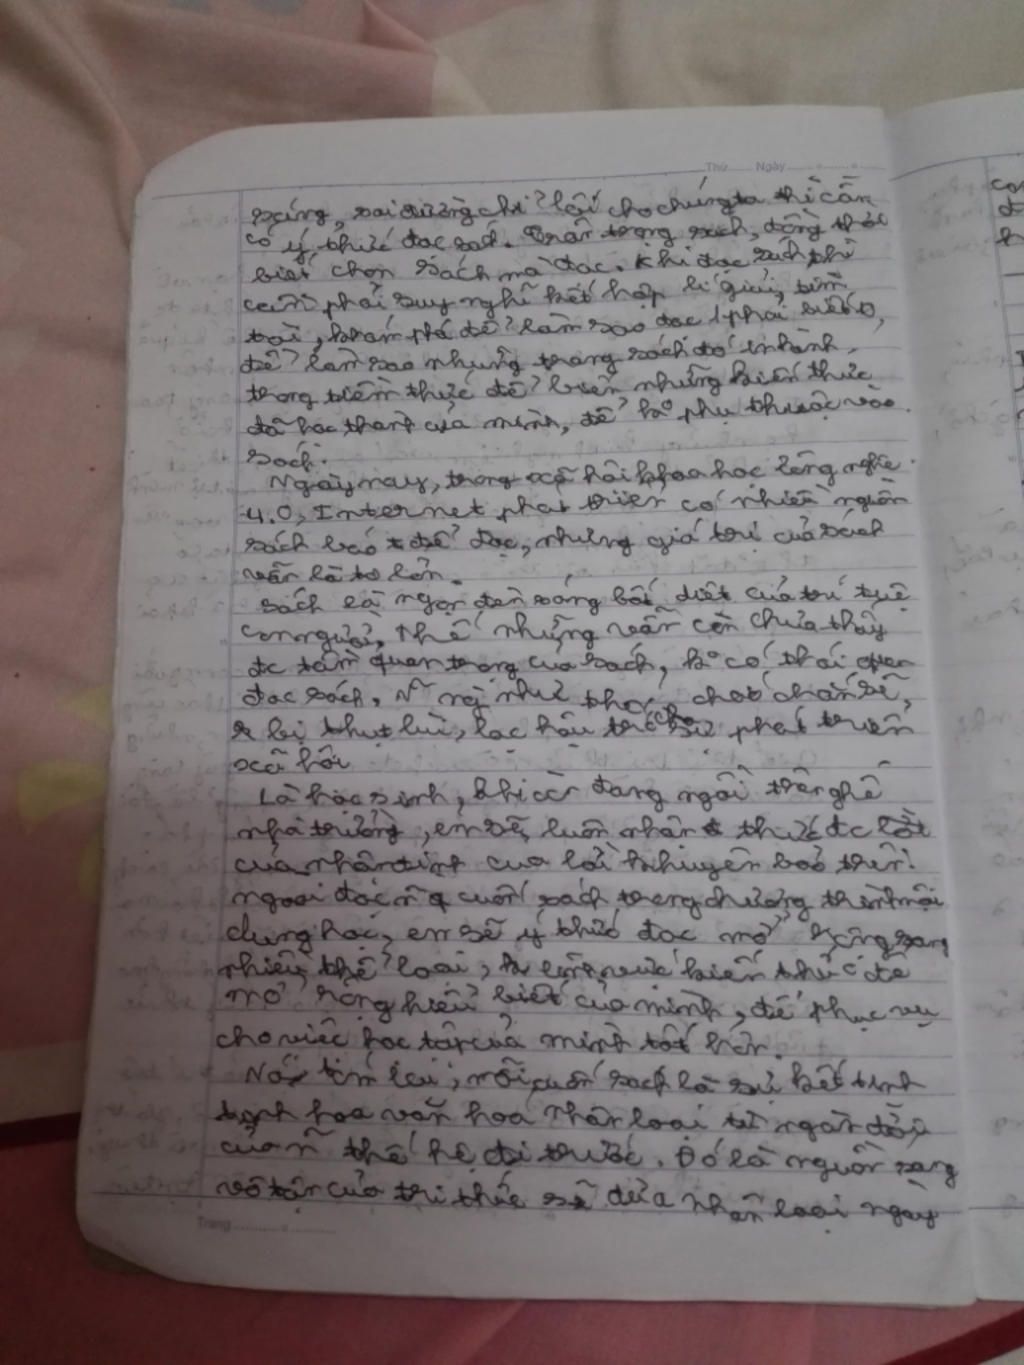 Thứ ..... Ngày ..........
sáng, soi đường chỉ lối cho chúng ta thì cần
có ý thức đọc sách. Trân trọng sách, đồng thời
biết chọn sách mà đọc. Khi đọc sách thì
cần phải suy nghĩ kết hợp lí giải, tìm
tòi, khám phá để làm sao đọc 1 phải biết 10,
để làm sao những trang sách đó in hành
trong tiềm thức để biến những kiến thức
đã học thành của mình, để ko phụ thuộc vào
sách.
Ngày nay, trong xã hội khoa học công nghệ
4.0, Internet phát triển có nhiều nguồn
sách báo để đọc, nhưng giá trị của sách
vẫn là to lớn.
Sách là ngọn đèn sáng bất diệt của trí tuệ
con người, thế nhưng vẫn còn chưa thấy
đc tầm quan trọng của sách, ko có thói quen
đọc sách. như chắc chắn sẽ
bị thụt lùi, lạc hậu sự phát triển
xã hội
Là học sinh, khi còn đang ngồi trên ghế
nhà trường, em sẽ luôn nhận thức đc
của nhận định của lời khuyên bảo trên!
ngoài đọc n q cuốn sách trong chương trình nội
dung học, em sẽ ý thức đọc mở rộng sang
nhiều thể loại, lĩnh vực kiến thức để
mở rộng hiểu biết của mình, để phục vụ
cho việc học tập của mình tốt hơn.
Nói tóm lại, mỗi cuốn sách là sự kết tinh
tinh hoa văn hoá nhân loại từ ngàn đời
của n thế hệ đi trước. Đó là nguồn sáng
vô tận của tri thức sẽ đưa nhân loại ngày
Trang ..........